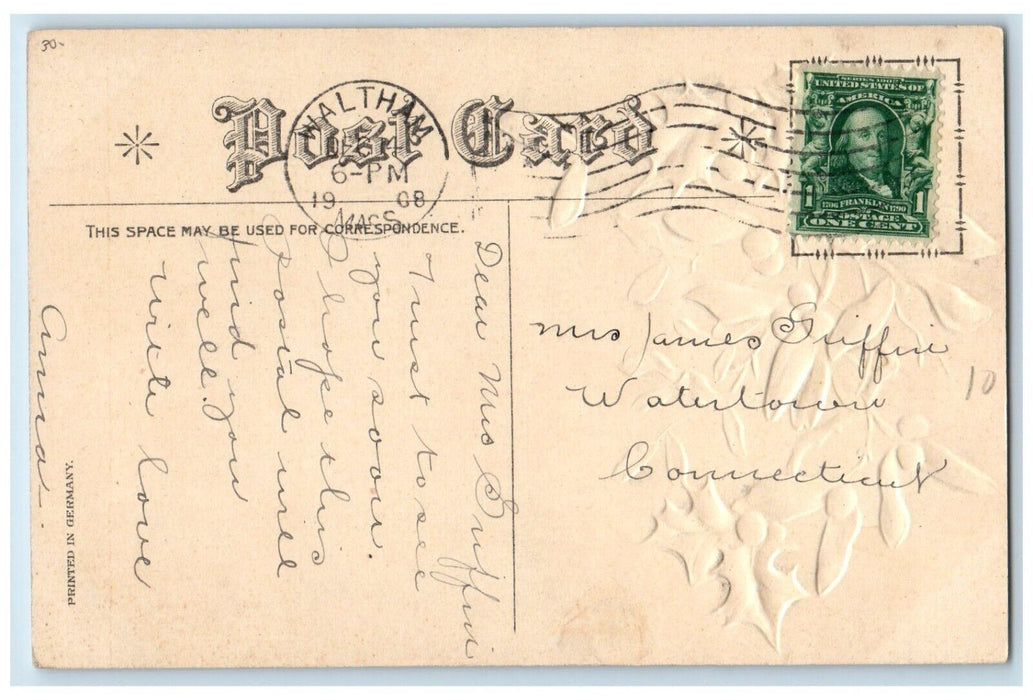 30-
Post Card
WALTHAM
6-PM
19 08
MASS
SERIES 1902
UNITED STATES OF
AMERICA
1706 FRANKLIN 1790
1 POSTAGE 1
ONE CENT
THIS SPACE MAY BE USED FOR CORRESPONDENCE.
Dear Mrs Griffin
Trust to see
you soon.
I hope this
postal will
find you
well.
with love
Anna.
PRINTED IN GERMANY.
Mrs James Griffin
Watertown
Connecticut
10